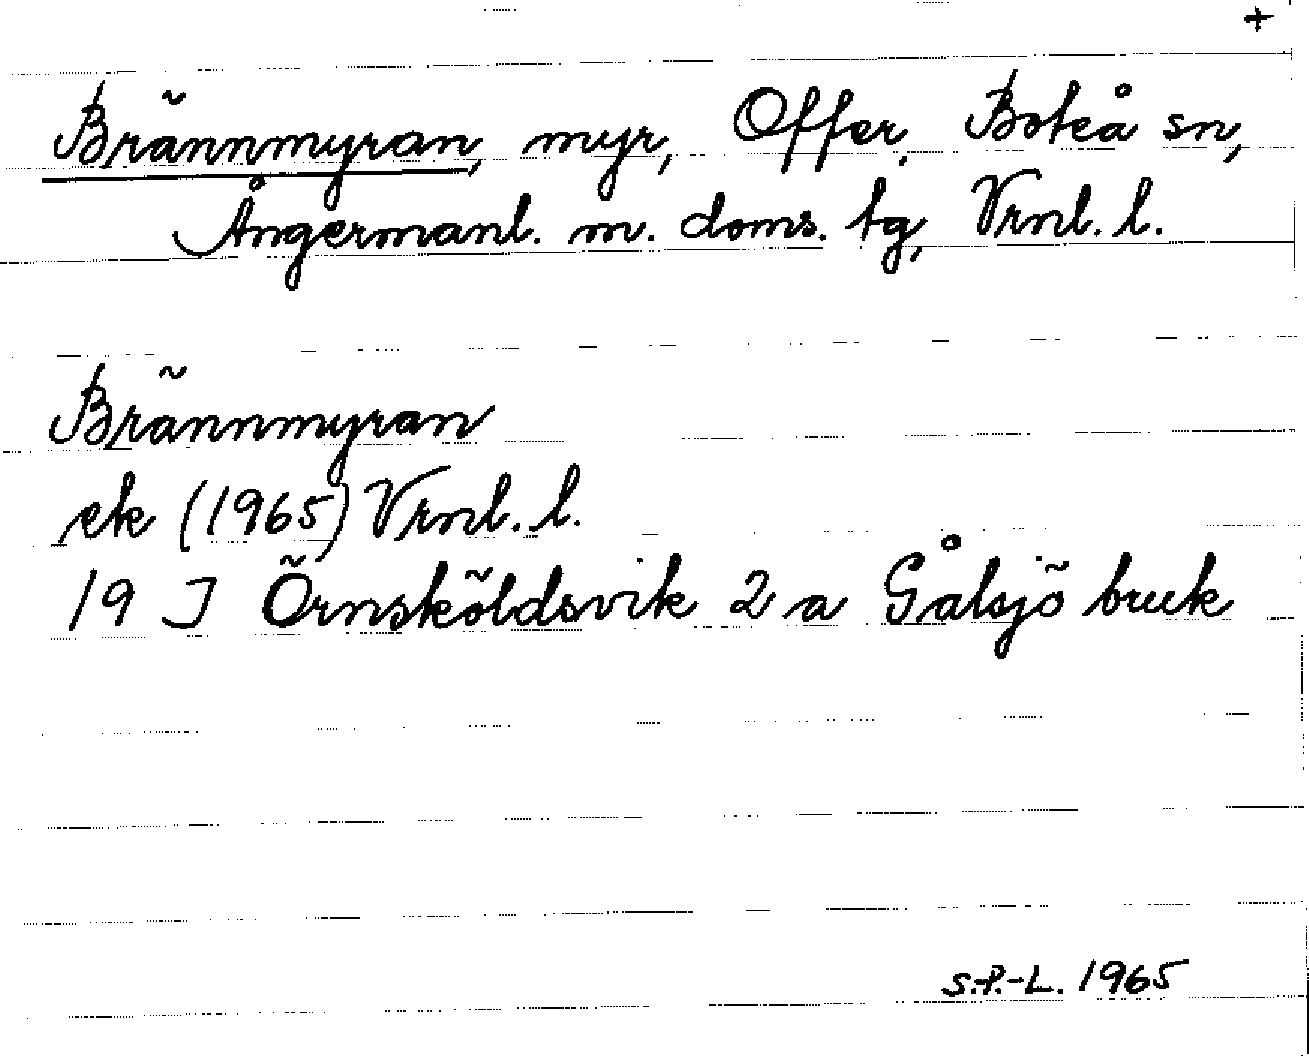 +
Brännmyran, myr, Offer, Boteå sn,
Ångermanl. m. doms. tg, Vrnl. l.
Brännmyran
ek (1965) Vrnl. l.
19 J Örnsköldsvik 2 a Gålsjö bruk
S.P.-L. 1965